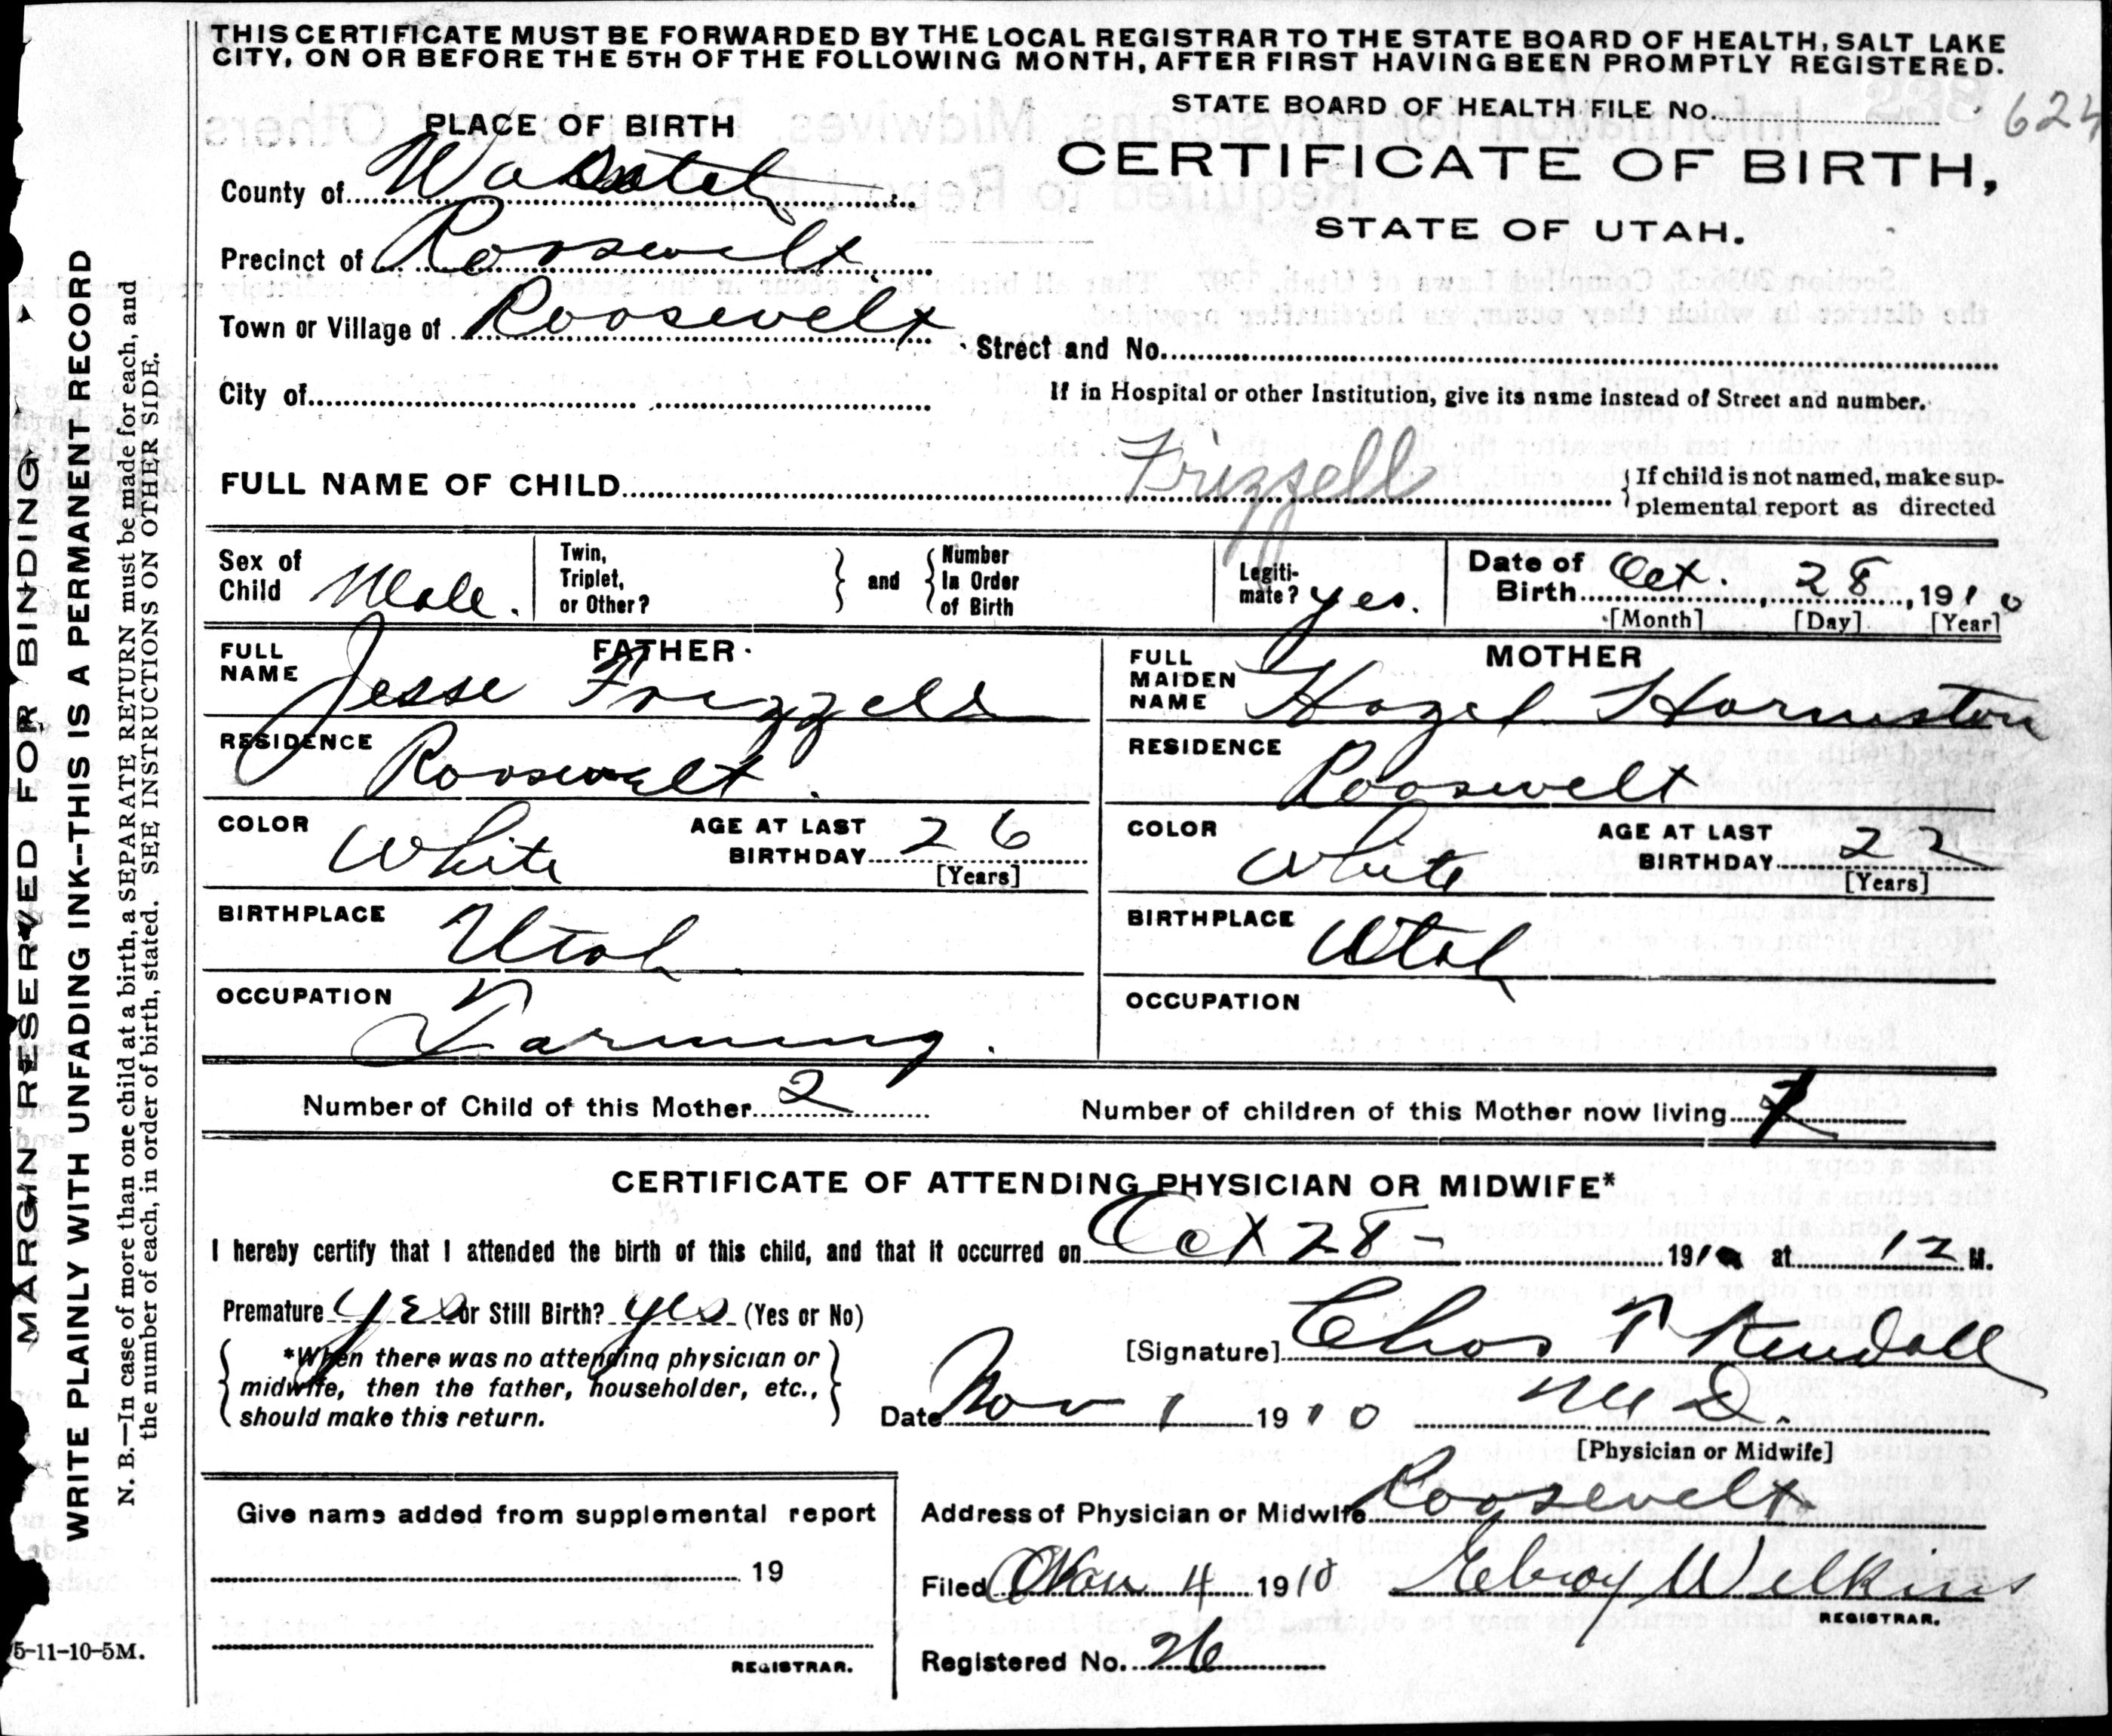 THIS CERTIFICATE MUST BE FORWARDED BY THE LOCAL REGISTRAR TO THE STATE BOARD OF HEALTH, SALT LAKE
CITY, ON OR BEFORE THE 5TH OF THE FOLLOWING MONTH, AFTER FIRST HAVING BEEN PROMPTLY REGISTERED.
STATE BOARD OF HEALTH FILE No. 624
PLACE OF BIRTH
CERTIFICATE OF BIRTH,
STATE OF UTAH.
County of Wasatch
Precinct of Roosevelt
Town or Village of Roosevelt
Street and No.
City of
If in Hospital or other Institution, give its name instead of Street and number.
FULL NAME OF CHILD Frizzell
{ If child is not named, make sup-
plemental report as directed
Sex of Child Male.
Twin, Triplet, or Other? } and { Number In Order of Birth
Legiti-mate? yes.
Date of Birth Oct. 28, 1910
[Month] [Day] [Year]
FATHER
FULL NAME Jesse Frizzell
RESIDENCE Roosevelt.
COLOR White AGE AT LAST BIRTHDAY 26
[Years]
BIRTHPLACE Utah
OCCUPATION Farming.
MOTHER
FULL MAIDEN NAME Hazel Harmston
RESIDENCE Roosevelt
COLOR White AGE AT LAST BIRTHDAY 22
[Years]
BIRTHPLACE Utah
OCCUPATION
Number of Child of this Mother 2
Number of children of this Mother now living
CERTIFICATE OF ATTENDING PHYSICIAN OR MIDWIFE*
I hereby certify that I attended the birth of this child, and that it occurred on Oct 28- 1910 at 12 M.
Premature yes or Still Birth? yes (Yes or No)
[Signature] Chas T Kendall
*When there was no attending physician or
midwife, then the father, householder, etc.,
should make this return.
Date Nov 1 1910 M D.
[Physician or Midwife]
Give name added from supplemental report
19
REGISTRAR.
Address of Physician or Midwife Roosevelt
Filed Nov 4 1910 Elroy Wilkins
REGISTRAR.
Registered No. 26
MARGIN RESERVED FOR BINDING
WRITE PLAINLY WITH UNFADING INK--THIS IS A PERMANENT RECORD
N. B.—In case of more than one child at a birth, a SEPARATE RETURN must be made for each, and
the number of each, in order of birth, stated. SEE INSTRUCTIONS ON OTHER SIDE.
5-11-10-5M.